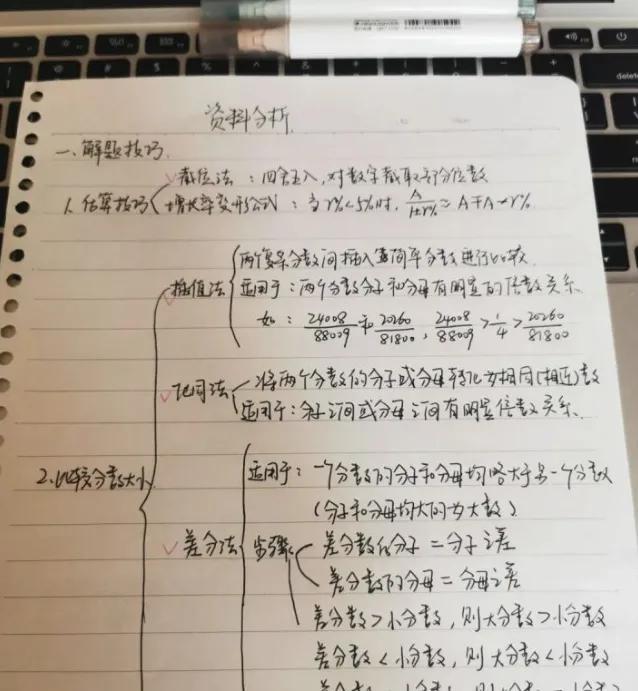 资料分析
一、解题技巧
截位法：四舍五入，对数字截取部分位数
1. 估算技巧
增长率变形公式：当r%<5%时，A/(1±r%)≈A∓A·r%
两个复杂分数间插入简单分数进行比较
插值法
适用于：两个分数分子和分母有明显的倍数关系
如：24008/88009和20260/81800，24008/88009>1/4>20260/81800
将两个分数的分子或分母转化为相同(相近)数
化同法
适用于：分子之间或分母之间有明显倍数关系.
2. 比较分数大小
适用于：一个分数的分子和分母均略大于另一个分数
(分子和分母均大的为大数)
差分法
步骤
差分数的分子=分子之差
差分数的分母=分母之差
差分数>小分数，则大分数>小分数
差分数<小分数，则大分数<小分数